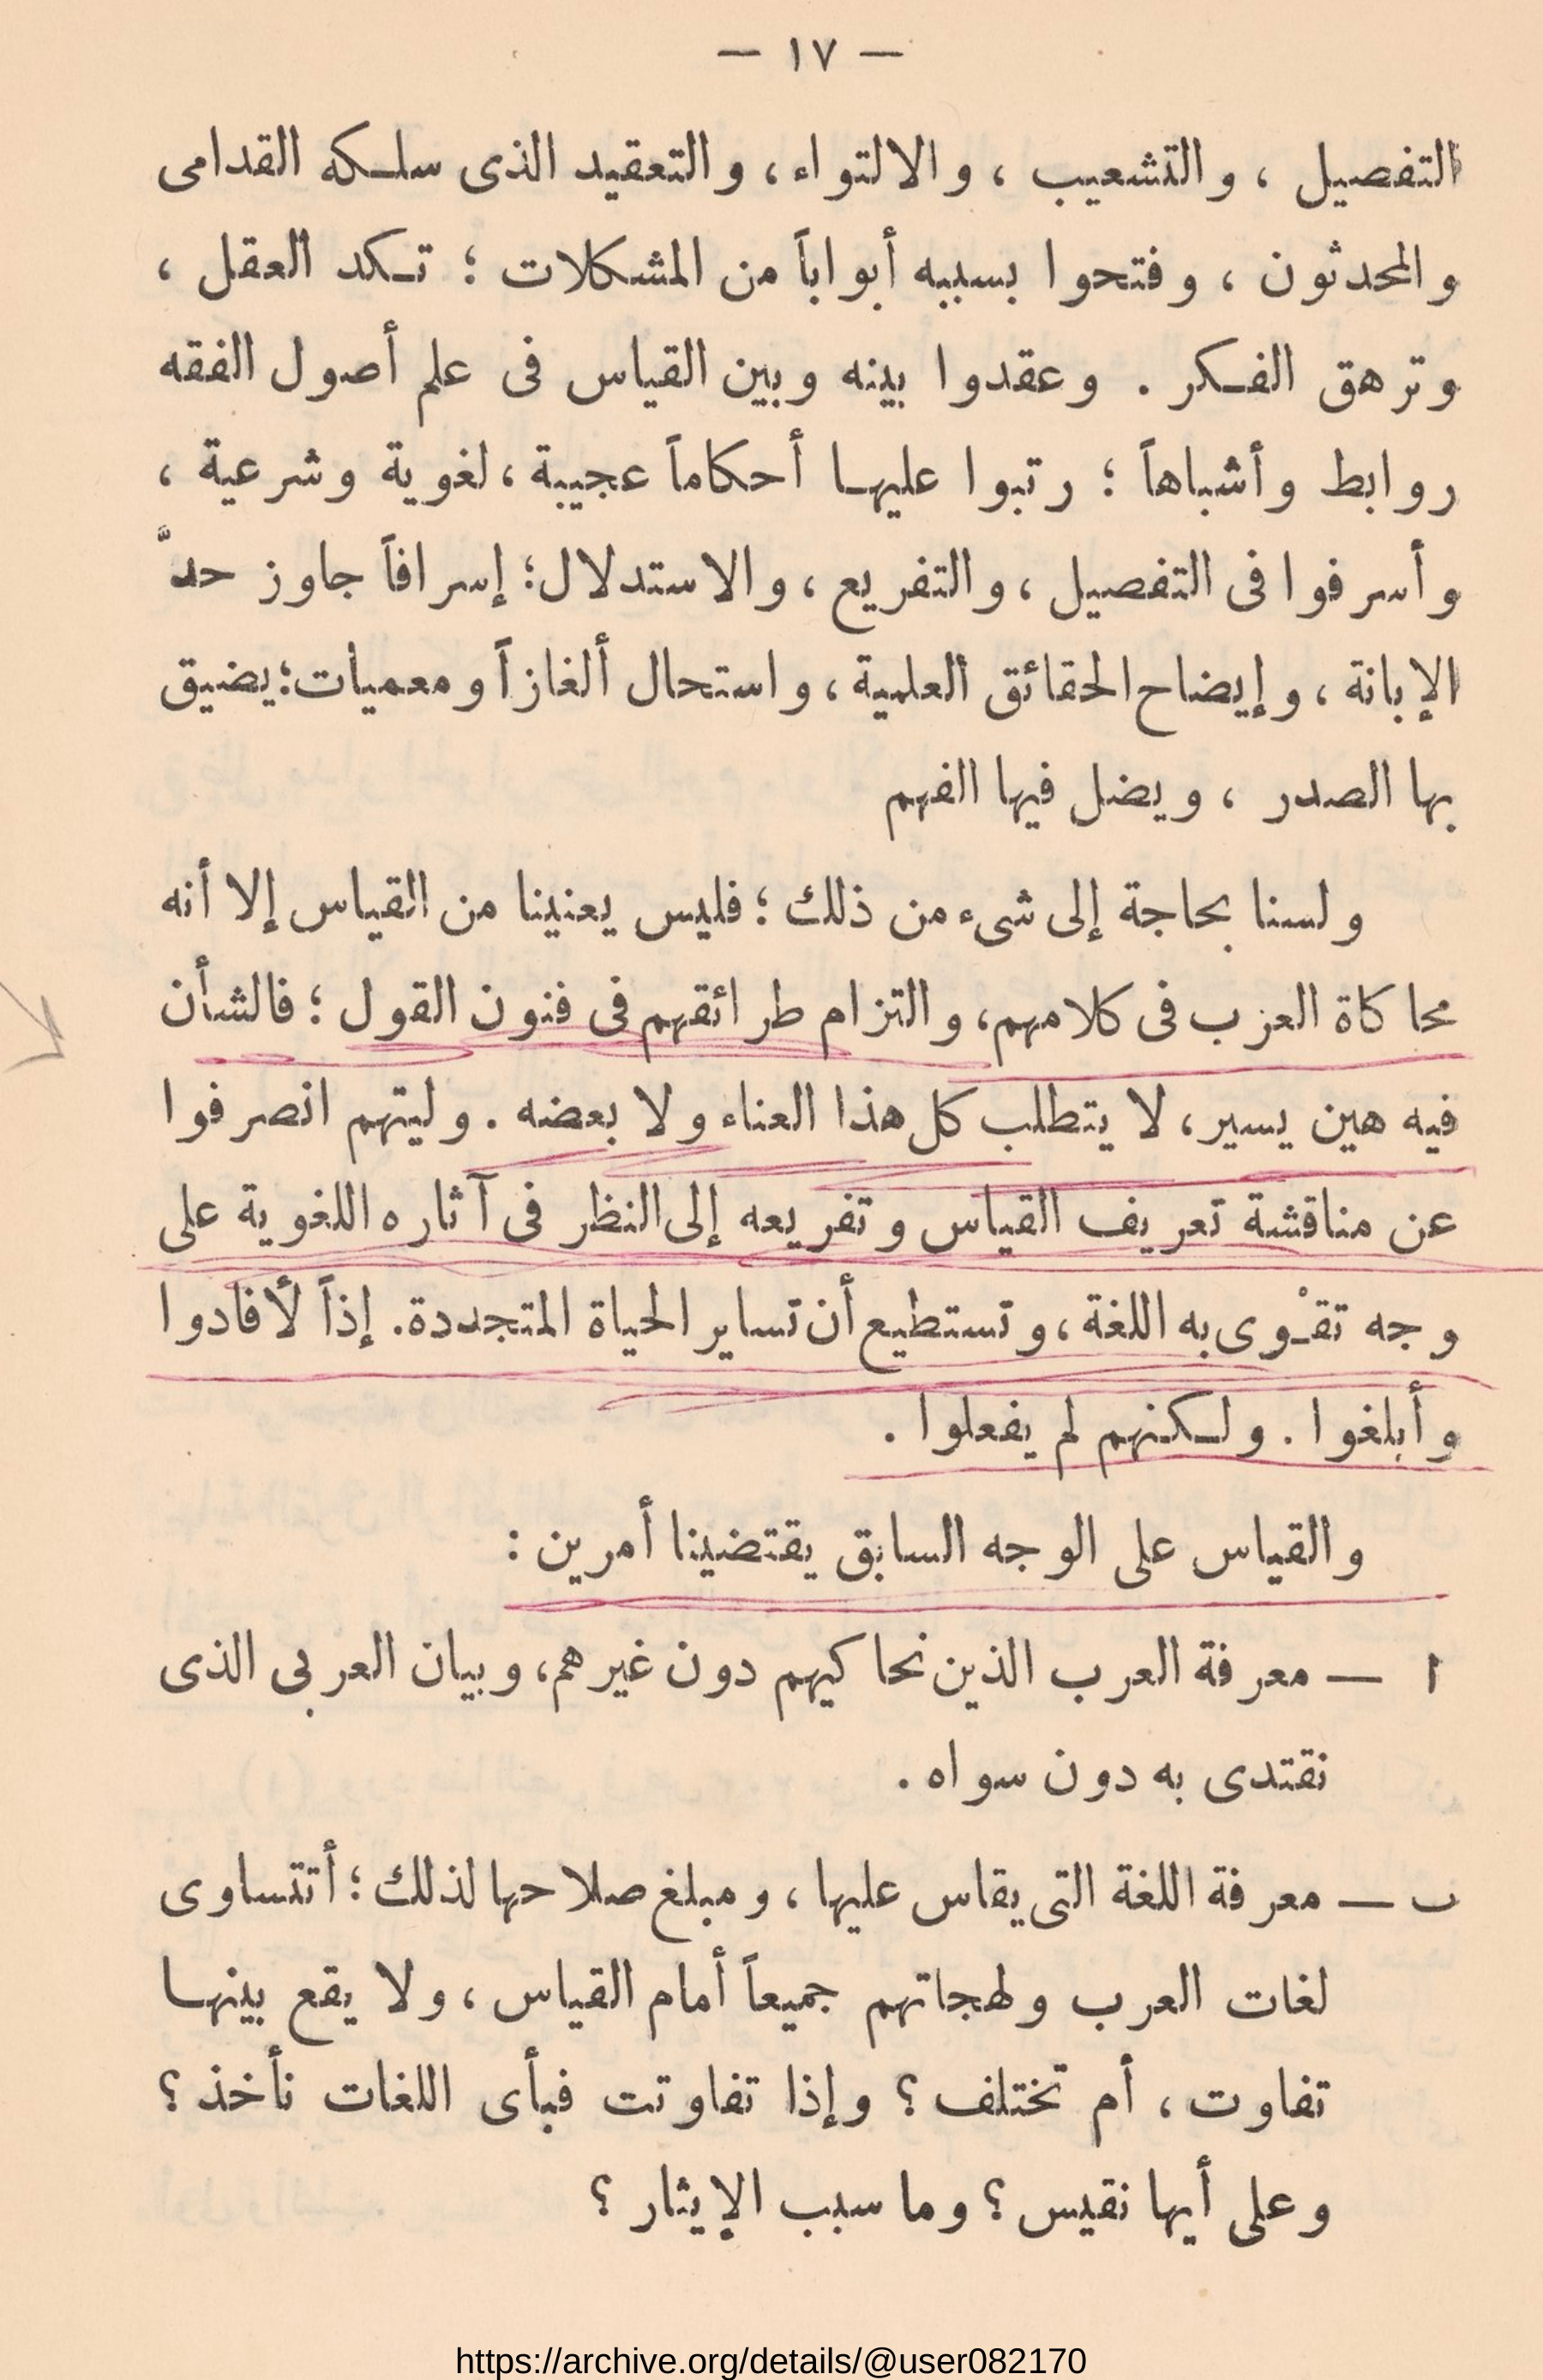 — ١٧ —
التفصيل ، والتشعيب ، والالتواء ، والتعقيد الذى سلكه القدامى
والمحدثون ، وفتحوا بسببه أبواباً من المشكلات ؛ تكد العقل ،
وترهق الفكر . وعقدوا بينه وبين القياس فى علم أصول الفقه
روابط وأشباهاً ؛ رتبوا عليها أحكاماً عجيبة ، لغوية وشرعية ،
وأسرفوا فى التفصيل ، والتفريع ، والاستدلال ؛ إسرافاً جاوز حدَّ
الإبانة ، وإيضاح الحقائق العلمية ، واستحال ألغازاً ومعميات ؛ يضيق
بها الصدر ، ويضل فيها الفهم
ولسنا بحاجة إلى شىء من ذلك ؛ فليس يعنينا من القياس إلا أنه
محاكاة العرب فى كلامهم ، والتزام طرائقهم فى فنون القول ؛ فالشأن
فيه هين يسير ، لا يتطلب كل هذا العناء ولا بعضه . وليتهم انصرفوا
عن مناقشة تعريف القياس وتفريعه إلى النظر فى آثاره اللغوية على
وجه تقْوى به اللغة ، وتستطيع أن تساير الحياة المتجددة . إذاً لأفادوا
وأبلغوا . ولكنهم لم يفعلوا .
والقياس على الوجه السابق يقتضينا أمرين :
ا — معرفة العرب الذين نحاكيهم دون غيرهم ، وبيان العربى الذى
نقتدى به دون سواه .
ب — معرفة اللغة التى يقاس عليها ، ومبلغ صلاحها لذلك ؛ أتتساوى
لغات العرب ولهجاتهم جميعاً أمام القياس ، ولا يقع بينها
تفاوت ، أم تختلف ؟ وإذا تفاوتت فبأى اللغات نأخذ ؟
وعلى أيها نقيس ؟ وما سبب الإيثار ؟
https://archive.org/details/@user082170